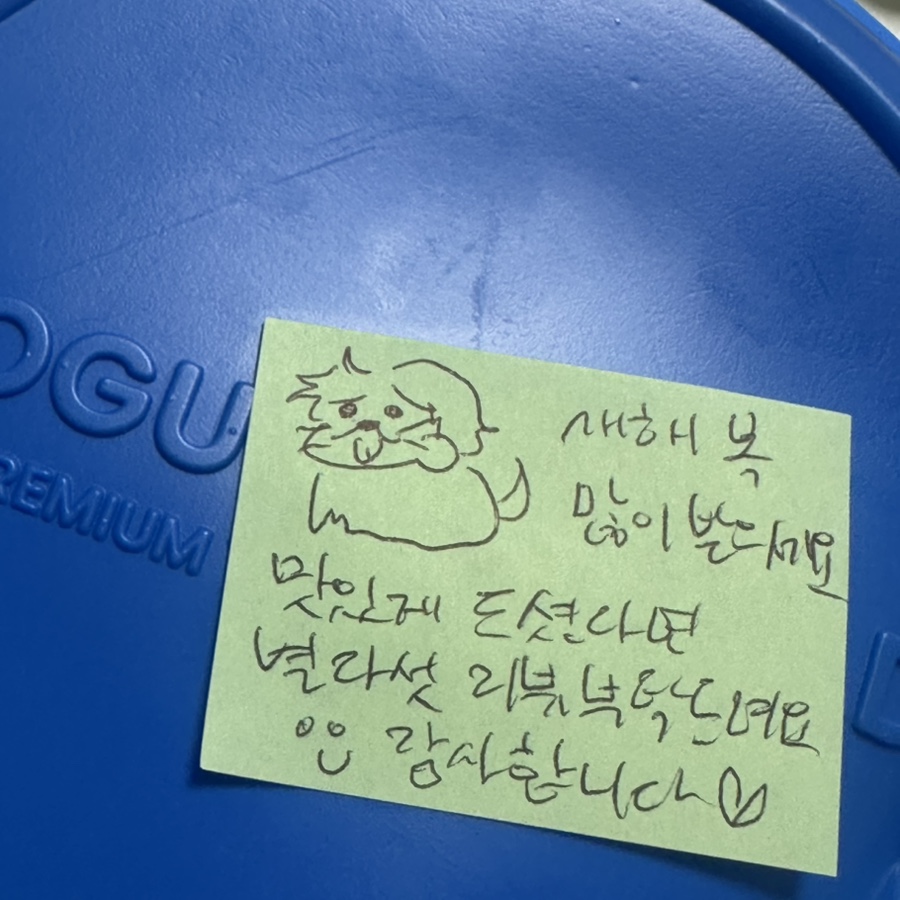 OGU
REMIUM
새해 복
많이 받으세요
맛있게 드셨다면
별 다섯 리뷰 부탁드려요
감사합니다♡